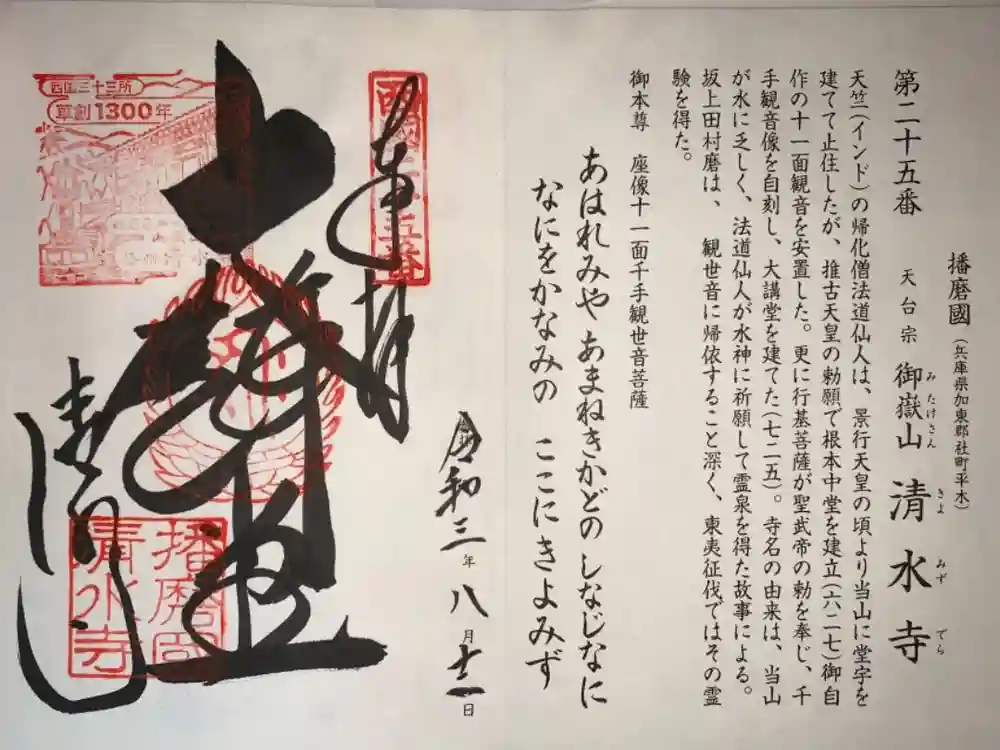 播磨國（兵庫県加東郡社町平木）
第二十五番　天台宗　御嶽山　清水寺
みたけさん　きよみずでら
天竺（インド）の帰化僧法道仙人は、景行天皇の頃より当山に堂宇を
建てて止住したが、推古天皇の勅願で根本中堂を建立（六二七）御自
作の十一面観音を安置した。更に行基菩薩が聖武帝の勅を奉じ、千
手観音像を自刻し、大講堂を建てた（七二五）。寺名の由来は、当山
が水に乏しく、法道仙人が水神に祈願して霊泉を得た故事による。
坂上田村磨は、観世音に帰依すること深く、東夷征伐ではその霊
験を得た。
御本尊　座像十一面千手観世音菩薩
あはれみや あまねきかどの しなじなに
なにをかなみの ここにきよみず
令和三年八月十一日
奉拝
清水寺
西国三十三所
草創1300年
播磨國
清水寺